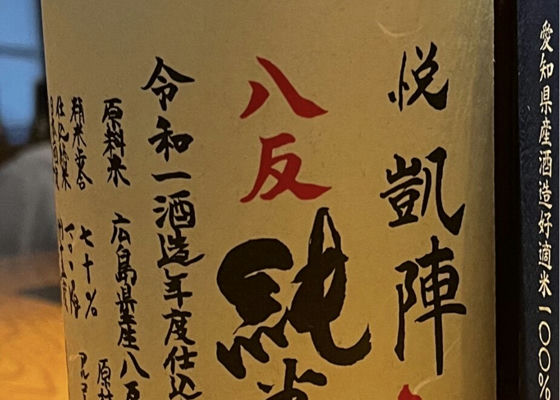 愛知県産酒造好適米一〇〇%
悦凱陣
八反
純米
令和一酒造年度仕込
原料米 広島県産八反
精米歩合 七十%